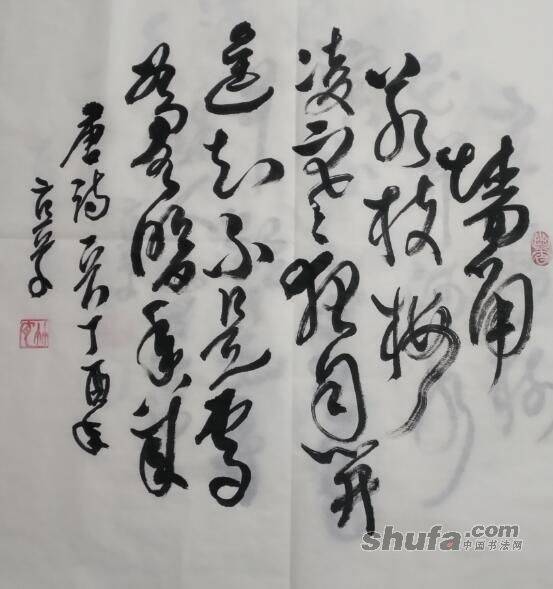 墙角
数枝梅
凌寒独自開
遥知不是雪
為有暗香來
唐詩一首丁酉年
shufa.com
中国书法网